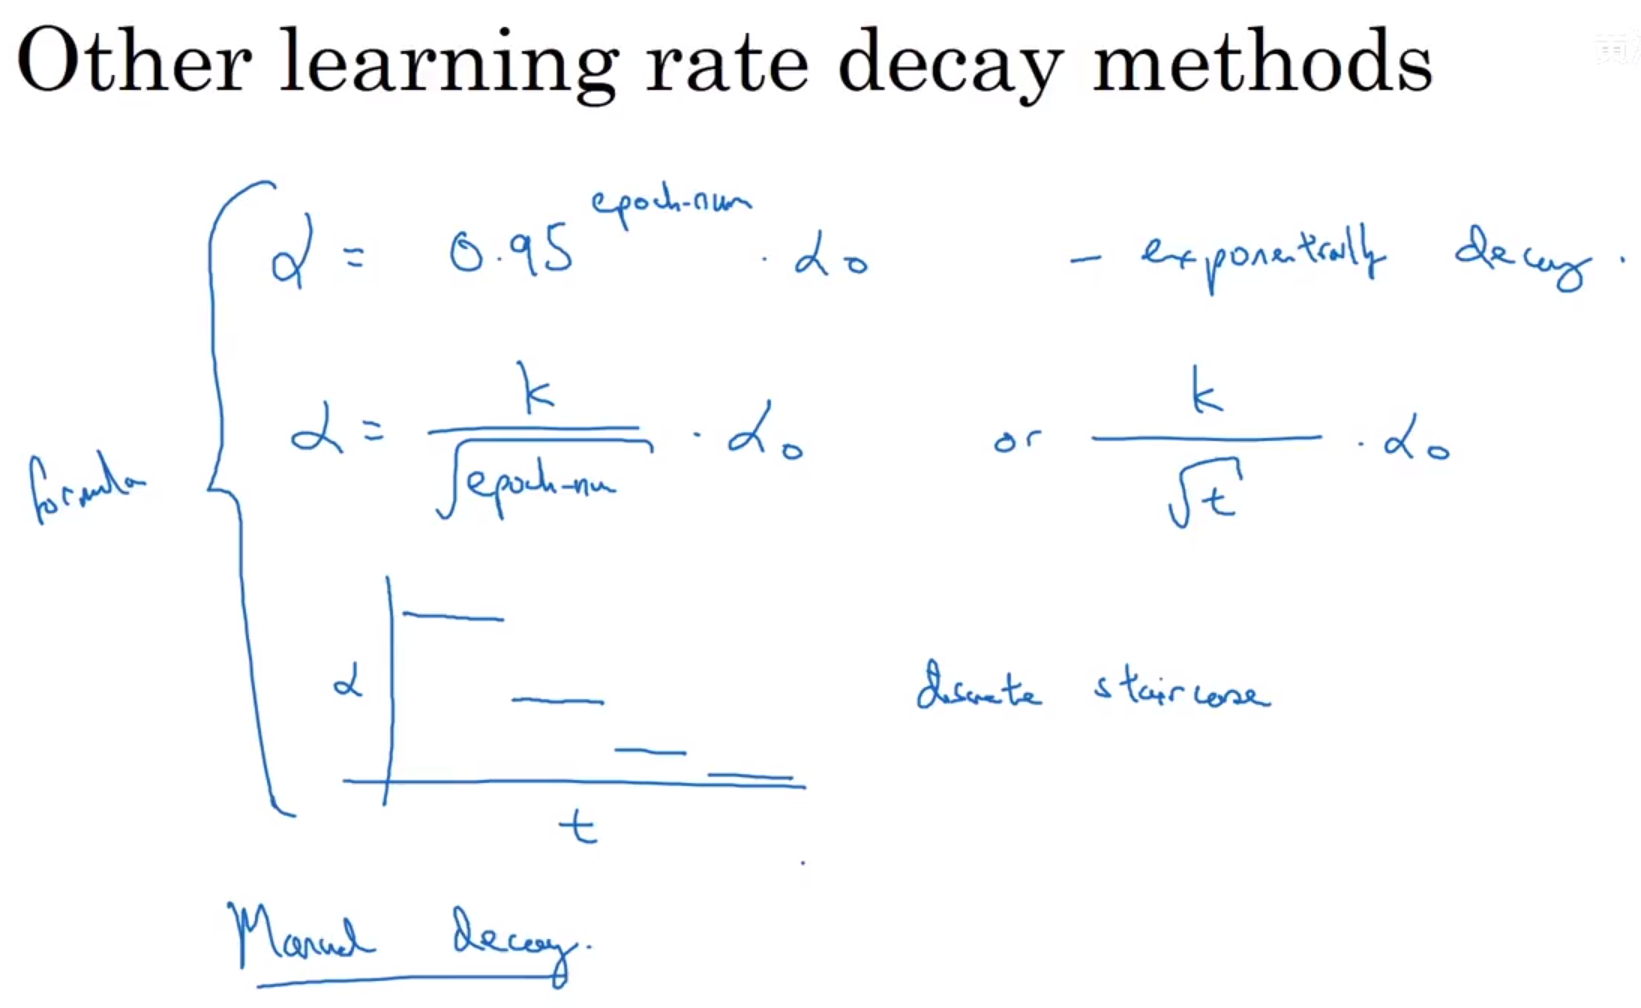 Other learning rate decay methods
α = 0.95^epoch-num · α₀ - exponentially decay.
α = k/√epoch-num · α₀ or k/√t · α₀
formula
α
discrete staircase
t
Manual decay.